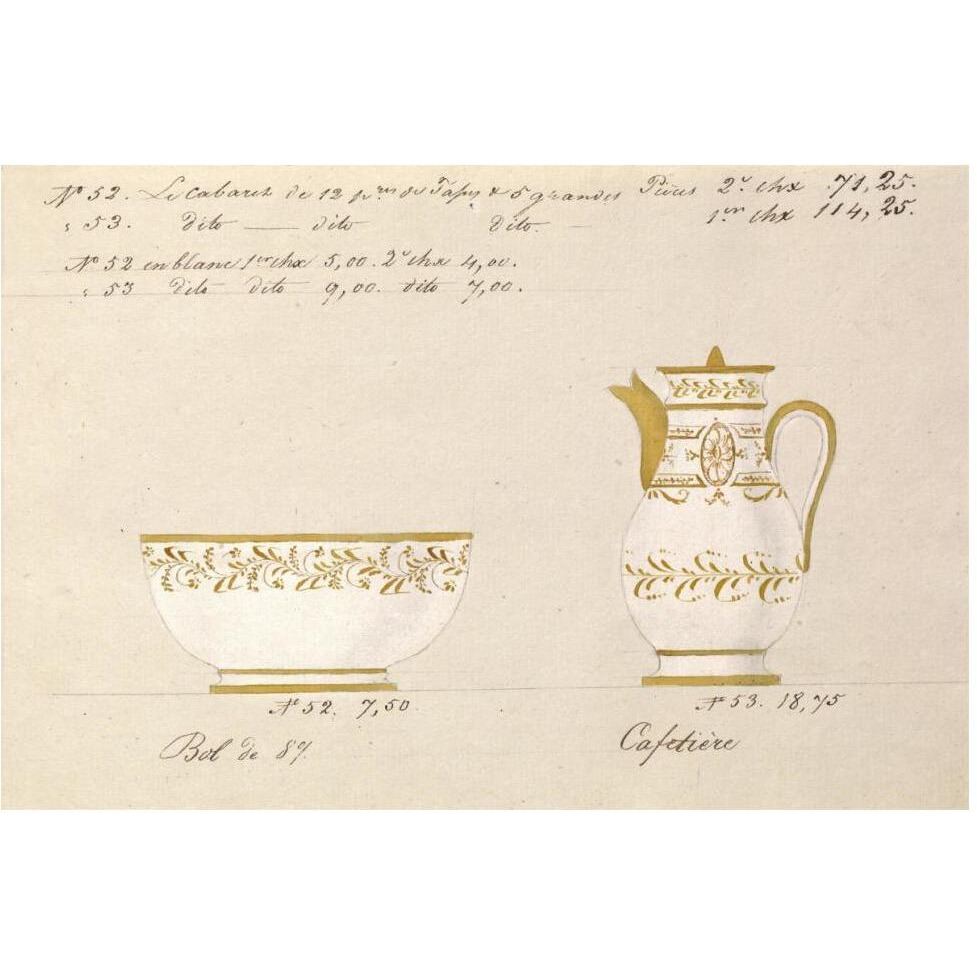 Nº 52. Le Cabaret de 12 p.res de Tasses & 5 grandes Pièces 2e chx 71,25.
" 53. dito — dito dito. — 1er chx 114,25.
Nº 52 en blanc 1er chx 5,00. 2e chx 4,00.
" 53 dito dito 9,00. dito 7,00.
Nº 52. 7,50
Bol de 8p.
Nº 53. 18,75
Cafetière